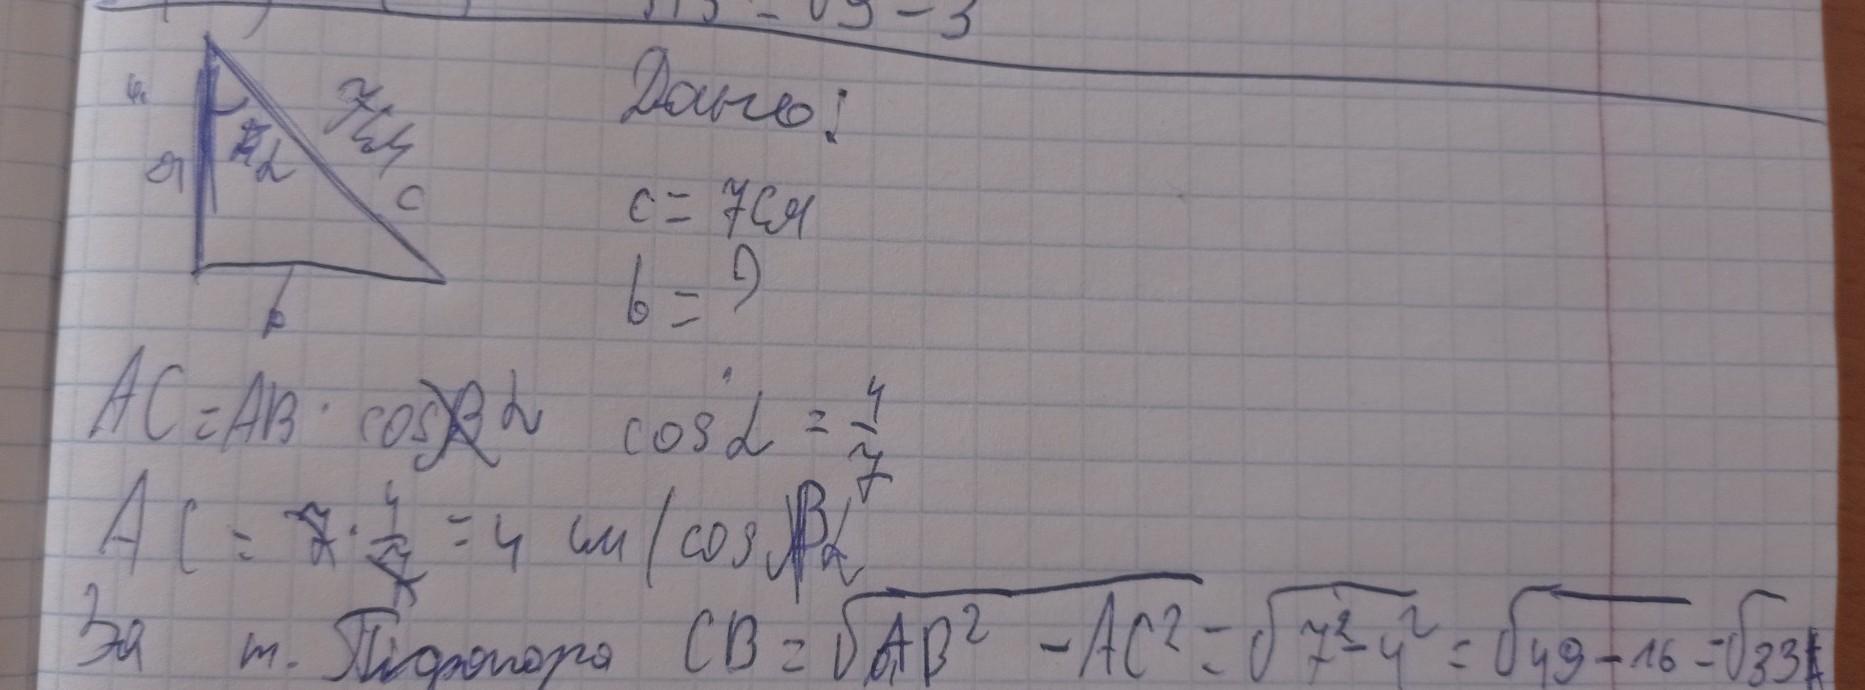 √9 - 3
7см
a
α
c
b
Дано:
c = 7см
b = ?
AC = AB · cos α cos α = 4/7
AC = 7 · 4/7 = 4 см / cos α
За т. Піфагора CB = √AB² - AC² = √7² - 4² = √49 - 16 = √33